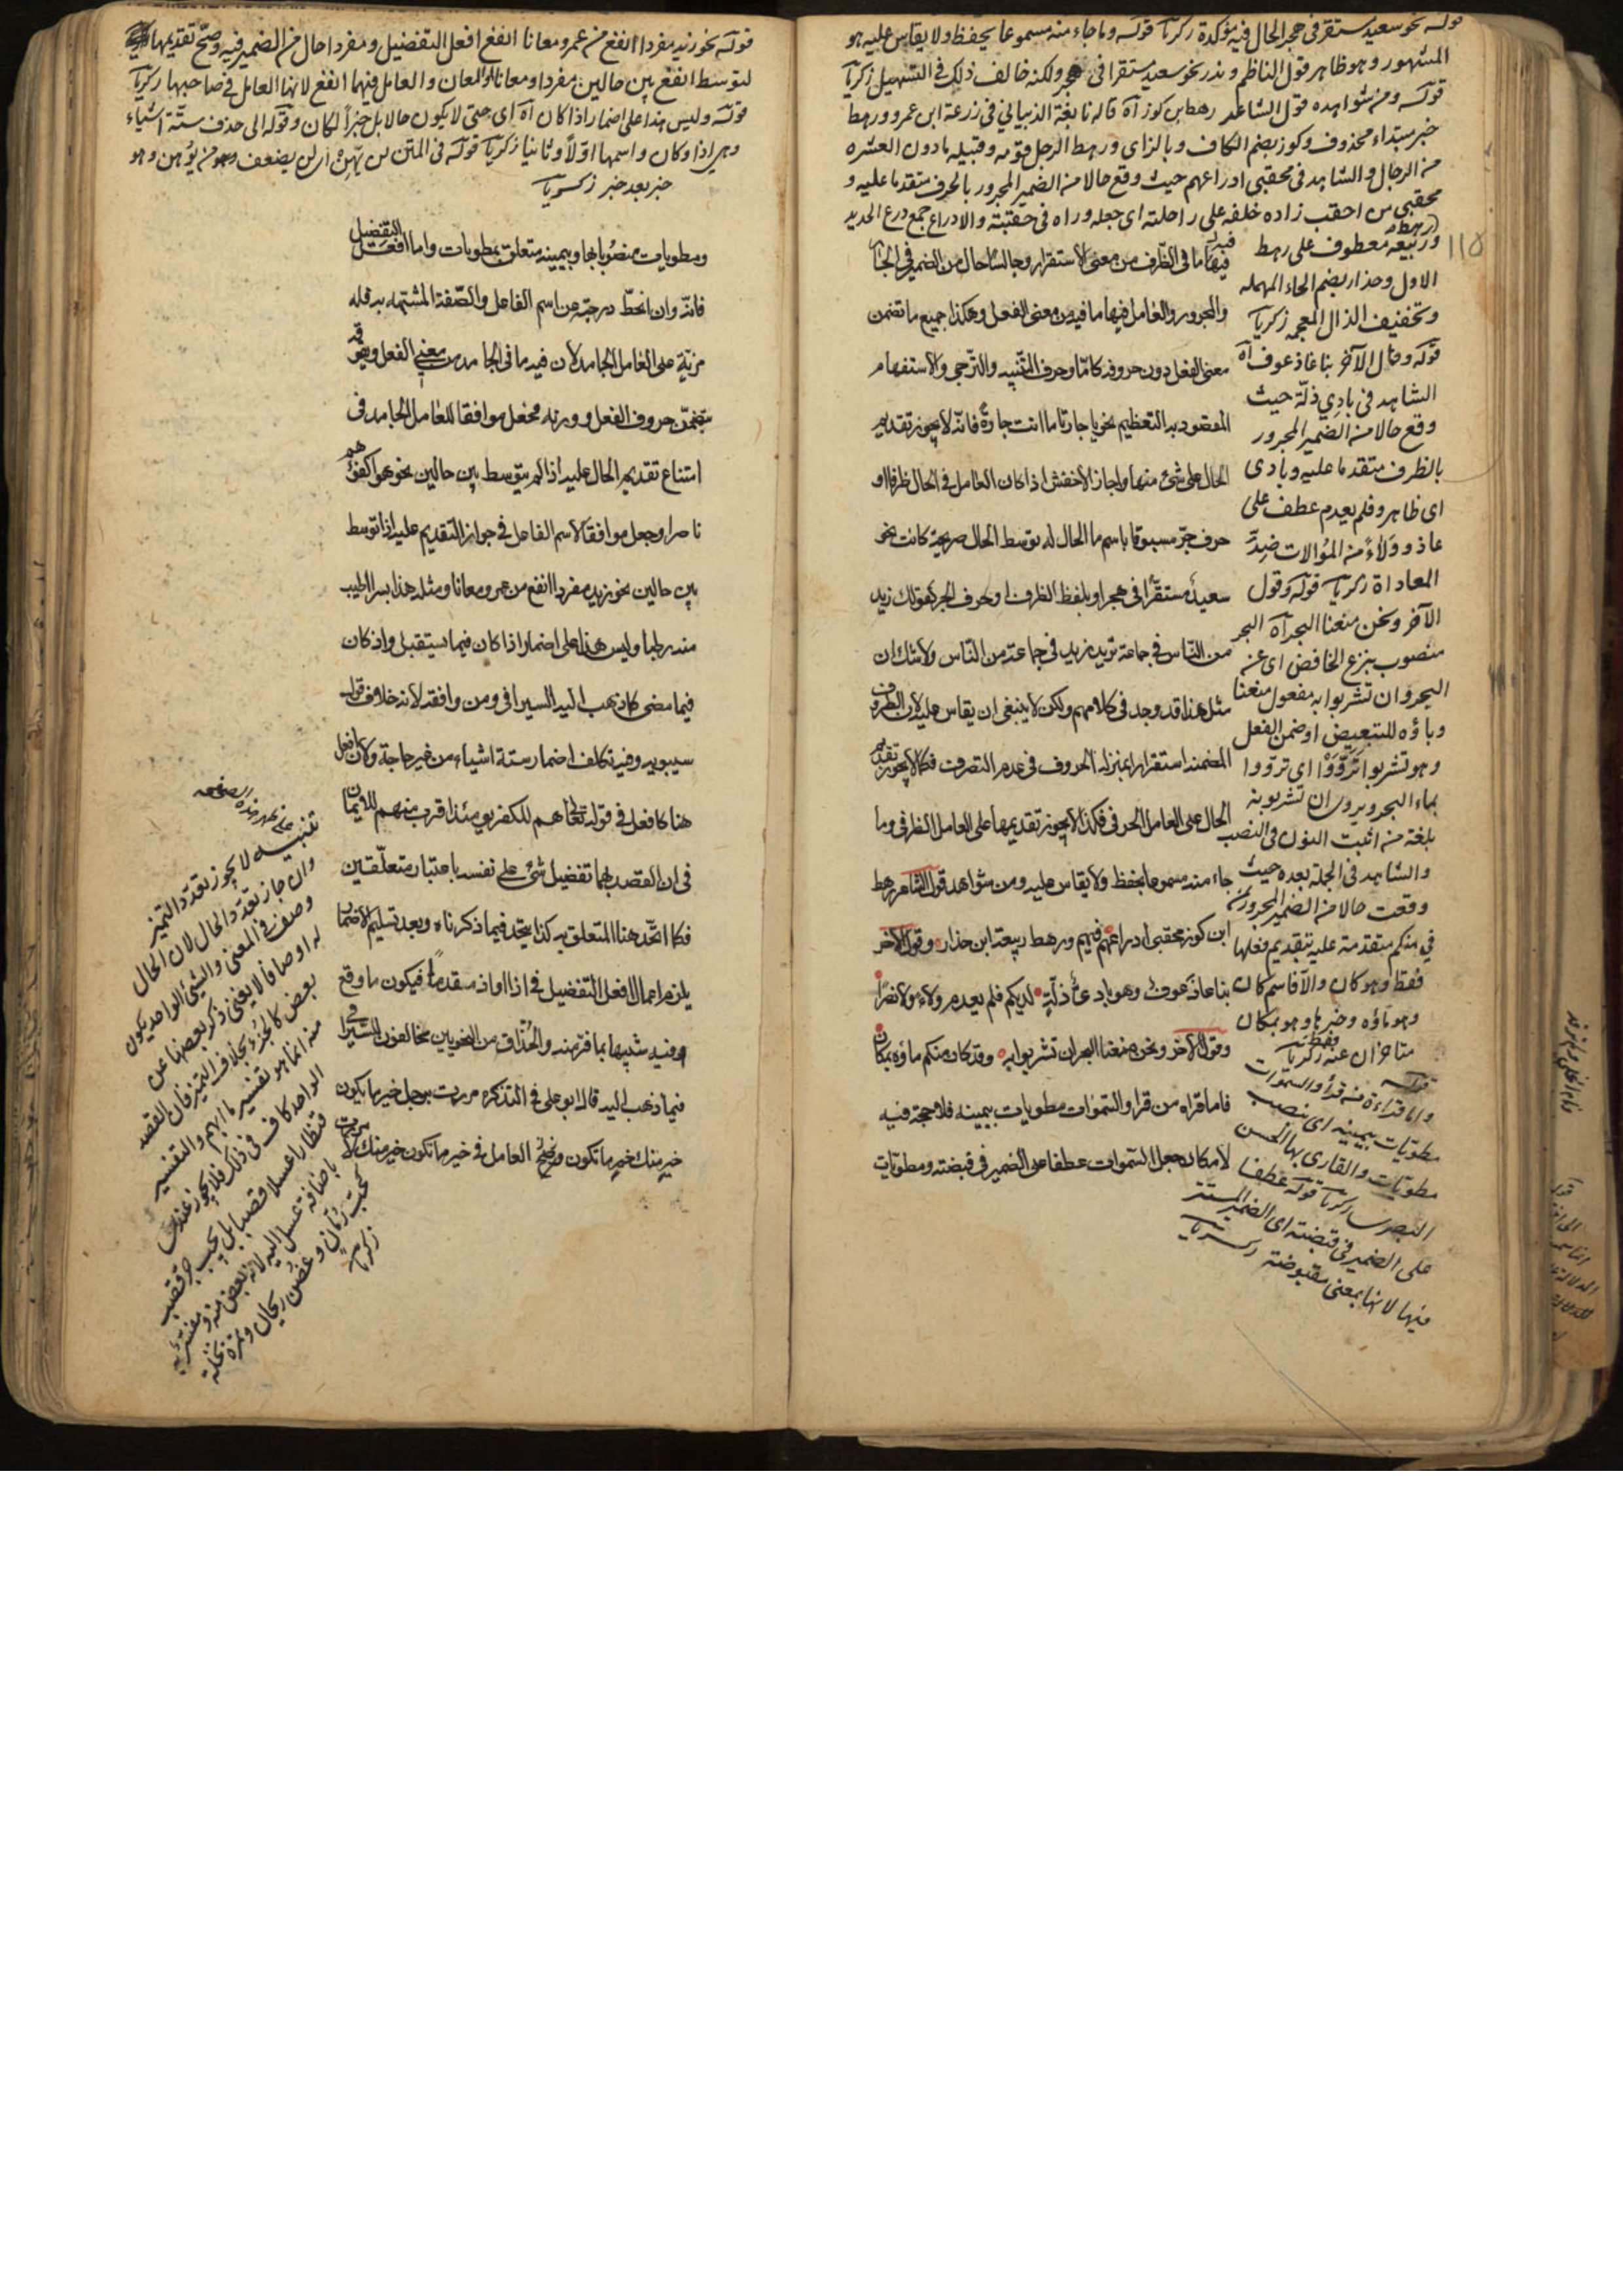 قوله نحو سعيد مستقر فى هجر الحال فيه مؤكدة زكريا قوله وما جاء منه مسموعا يحفظ ولا يقاس عليه هو
المشهور وهو ظاهر قول الناظم وندر نحو سعيد مستقرا فى هجر ولكنه خالف ذلك فى التسهيل زكريا
قوله ومن شواهده قول الشاعر رهط ابن كوز آه قاله نابغة الذبيانى فى زرعة ابن عمرو ورهط
خبر مبتداء محذوف وكوز بضم الكاف وبالزاى ورهط الرجل قومه وقبيله مادون العشره
من الرجال والشاهد فى محقبى ادراعهم حيث وقع حالا من الضمير المجرور بالحرف متقدما عليه و
محقبى من احقب زاده خلفه على راحلته اى جعله وراه فى حقيبته والادراع جمع درع الحديد
وربيعة معطوف على رهط
الاول وحذار بضم الحاء المهمله
وتخفيف الذال المعجمه زكريا
قوله وقال الآخر بنا عاذ عوف آه
الشاهد فى بادى ذلّة حيث
وقع حالا من الضمير المجرور
بالظرف متقدما عليه وبادى
اى ظاهر وفلم يعدم عطف على
عاذ وولاءً من الموالات ضدّ
المعاداة زكريا قوله وقول
الآخر ونحن منعنا البحر آه البحر
منصوب بنزع الخافض اى عن
البحر وان تشربوا به مفعول منعنا
وباؤه للتبعيض او ضمن الفعل
وهو تشربوا ترووا اى ترووا
بماء البحر ويروى ان تشربونه
بلغة من اثبت النون فى النصب
والشاهد فى الجملة بعده حيث
وقعت حالا من الضمير المجرور بمن
فى منكم متقدمة عليه بتقديم فعلها
فقط وهو كان والآ فاسم كان
وهو ماؤه وخبرها وهو بمكان
متأخران عنه زكريا
قوله
واما قراءة من قرأ والسموات
مطويات بيمينه اى بنصب
مطويات والقارى بها الحسن
البصرى زكريا قوله عطفا
على الضمير فى قبضته اى الضمير المستتر
فيها لانها بمعنى مقبوضة زكريا
١١٥
فيها ما فى الظرف من معنى الاستقرار وجالسا حال من الضمير فى الجار
والمجرور والعامل فيها ما فيه من معنى الفعل وهكذا جميع ما تضمن
معنى الفعل دون حروفه كاما وحرف التنبيه والترجى والاستفهام
المقصود به التعظيم نحو يا جارتا ما انت جارةً فانه لا يجوز تقديم
الحال على شئ منها واجاز الاخفش اذا كان العامل فى الحال ظرفا او
حرف جر مسبوقا باسم ما الحال له توسط الحال صريحة كانت نحو
سعيدٌ مستقرّا فى هجر او بلفظ الظرف او حرف الجر كقولك زيد
من الناس فى جماعة تريد زيد فى جماعة من الناس ولا شك ان
مثل هذا قد وجد فى كلامهم ولكن لا ينبغى ان يقاس عليه لان الظروف
المضمنه استقرارا بمنزلة الحروف فى عدم التصرف فكما لا يجوز تقديم
الحال على العامل الحرفى فكذا لا يجوز تقديمها على العامل الظرفى وما
جاء منه مسموعا يحفظ ولا يقاس عليه ومن شواهده قول الشاعر رهط
ابن كوز محقبى ادراعهم فيهم ورهط ربيعة ابن حذار وقول الآخر
بنا عاذ عوفٌ وهو بادىَ ذلّةٍ لديكم فلم يعدم ولاءً ولا نصرًا
وقول الآخر ونحن منعنا البحر ان تشربوا به وقد كان منكم ماؤه بمكان
فاما قراءة من قرا والسموات مطويات بيمينه فلا حجة فيه
لامكان جعل السموات عطفا على الضمير فى قبضته ومطويات
قوله نحو زيد مفردا انفع من عمرو معانا انفع افعل التفضيل ومفردا حال من الضمير فيه وصح تقديمها
لتوسط انفع بين حالين مفردا ومعانا والعامل فيهما انفع لانها العامل فى صاحبها زكريا
قوله وليس هذا على اضمار اذا كان آه اى حتى لا يكون حالا بل خبرًا لكان وقوله الى حذف ستة اشياء
وهى اذا وكان واسمها اوّلاً وثانيا زكريا قوله فى المتن لن يهن اى لن يضعف وهو من يوهن وهو
خبر بعد خبر زكريا
ومطويات منصوبا بها وبيمينه متعلق بمطويات واما افعل التفضيل
فانه وان انحط درجة عن اسم الفاعل والصفة المشبهه به فله
مزية على العامل الجامد لان فيه ما فى الجامد من معنى الفعل ويفوقه
بتضمّن حروف الفعل ووزنه فجعل موافقا للعامل الجامد فى
امتناع تقديم الحال عليه اذا لم يتوسط بين حالين نحو هو اكفؤهم
ناصرا وجعل موافقا لاسم الفاعل فى جواز التقديم عليه اذا توسط
بين حالين نحو زيد مفردا انفع من عمرو معانا ومثله هذا بسرا اطيب
منه رطبا وليس هذا على اضمار اذا كان فيما يستقبل واذ كان
فيما مضى كما ذهب اليه السيرافى ومن وافقه لانه خلاف قول
سيبويه وفيه تكلف اضمار ستة اشياء من غير حاجة ولان افعل
هنا كافعل فى قوله تعالى هم للكفر يومئذ اقرب منهم للايمان
فى ان القصد بهما تفضيل شئ على نفسه باعتبار متعلّقين
فكما اتّحد هنا المتعلق به كذا يتحد فيما ذكرناه وبعد تسليم الاضمار
يلزم اعمال افعل التفضيل فى اذا او اذ مقدما فيكون ما وقع
فيه شبيها بما فرّ منه والحُذّاق من النحويين مخالفون للسيرافى
فيما ذهب اليه قال ابو على فى التذكره مررت برجل خير ما يكون
خير منك خير ما تكون العامل فى خير ما تكون خير منك لا مررت
تنبيه لا يجوز تعدد التميز
وان جاز تعدّد الحال لان الحال
وصف فى المعنى والشئ الواحد يكون
له اوصافا لا يغنى ذكر بعضها عن
بعض كالخبر بخلاف التميز فان القصد
منه انما هو تفسير ما ابهم والتفسير
الواحد كاف فى ذلك فلا يجوز عندى
قنطارا عسلا قصبا بل يجب جر قصب
باضافة عسل اليه لانه بعض منه
كحب رمّان وغصن ريحان وثمرة نخلة
زكريا